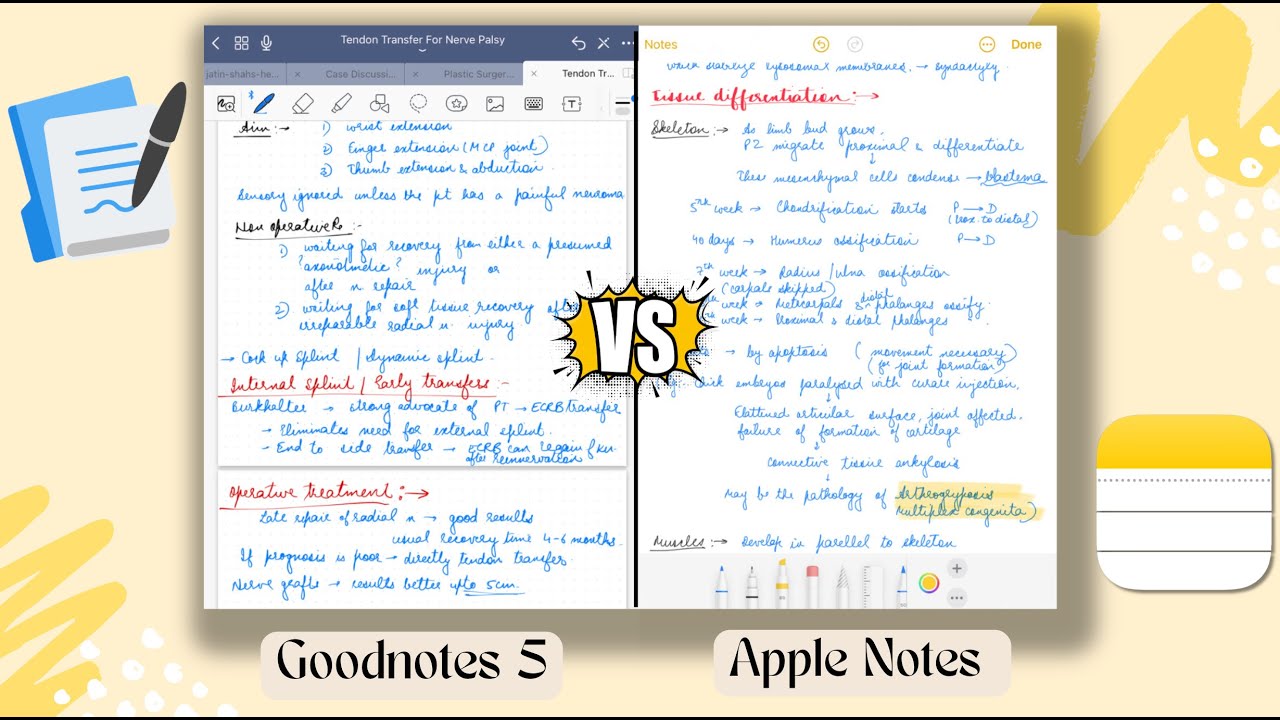 Tendon Transfer For Nerve Palsy
jatin-shahs-he...
Case Discussi...
Plastic Surger...
Tendon Tr...
Aim :→ 1) wrist extension
2) Finger extension (MCP joint)
3) Thumb extension & abduction
Sensory ignored unless the pt has a painful neuroma
Non operative Rx :-
1) waiting for recovery from either a presumed
"axonotmetic" injury or
after n repair
2) waiting for soft tissue recovery
irreparable radial n. injury
→ Cock up Splint / Dynamic splint.
Internal splint / Early transfers :-
Burkhalter → strong advocate of PT → ECRB transfer
→ Eliminates need for external splint.
- End to side transfer → ECRB can regain
after reinnervation
Operative treatment :→
Late repair of radial n → good results
usual recovery time 4-6 months.
If prognosis is poor → directly tendon transfer.
Nerve grafts → results better upto 5cm.
Goodnotes 5
VS
Notes
Done
which stabilize lysosomal membranes. → syndactyly.
Tissue differentiation :→
Skeleton :→ As limb bud grows,
PZ migrate proximal & differentiate
↓
These mesenchymal cells condense → blastema
5th week → Chondrification starts P → D
(Prox. to distal)
40 days → Humerus ossification P → D
7th week → Radius / ulna ossification
(carpals skipped)
week → Metacarpals & distal phalanges ossify.
week → Proximal & distal phalanges "
→ by apoptosis (movement necessary)
(for joint formation)
chick embryos paralysed with curare injection.
↓
Flattened articular surface, joint affected.
failure of formation of cartilage
↓
Connective tissue ankylosis
↓
May be the pathology of Arthrogryposis
Multiplex Congenita)
Muscles :→ Develop in parallel to skeleton
Apple Notes